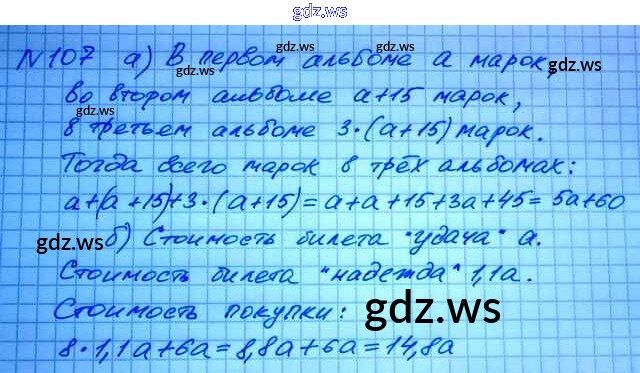 gdz.ws
N 107 а) В первом альбоме а марок,
gdz.ws gdz.ws gdz.ws gdz.ws
во втором альбоме а+15 марок,
в третьем альбоме 3·(а+15) марок.
Тогда всего марок в трёх альбомах:
а+(а+15)+3·(а+15)=а+а+15+3а+45=5а+60
gdz.ws б) Стоимость билета "удача" а.
gdz.ws
Стоимость билета "надежда" 1,1а.
Стоимость покупки: gdz.ws
8·1,1а+6а=8,8а+6а=14,8а